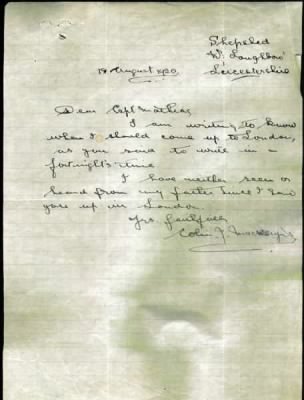 Shepshed
Nr Loughboro'
Leicestershire
19 August 1920.
Dear Capt
I am writing to know
when I should come up to London,
as you said to write in a
fortnight's time
I have neither seen or
heard from my father since I saw
you up in London
Yrs faithfully
Colin J.